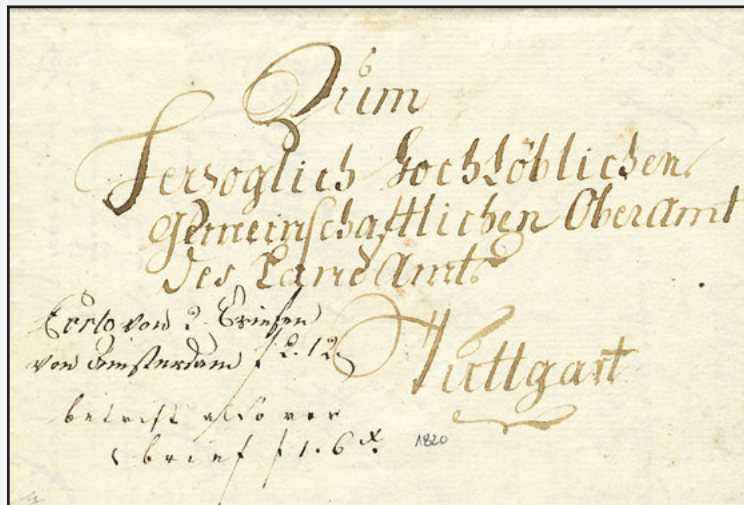 Zum
Herzoglich Hochlöblichen
Gemeinschaftlichen Oberamt
des Land Amts
Stuttgart
Porto von 2. Briefen
von Amsterdam f 2.12
betrift also per
1 brief f 1.6 x.
1820